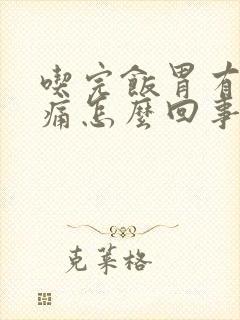 喫完飯胃有
痛怎麼回事
克莱格